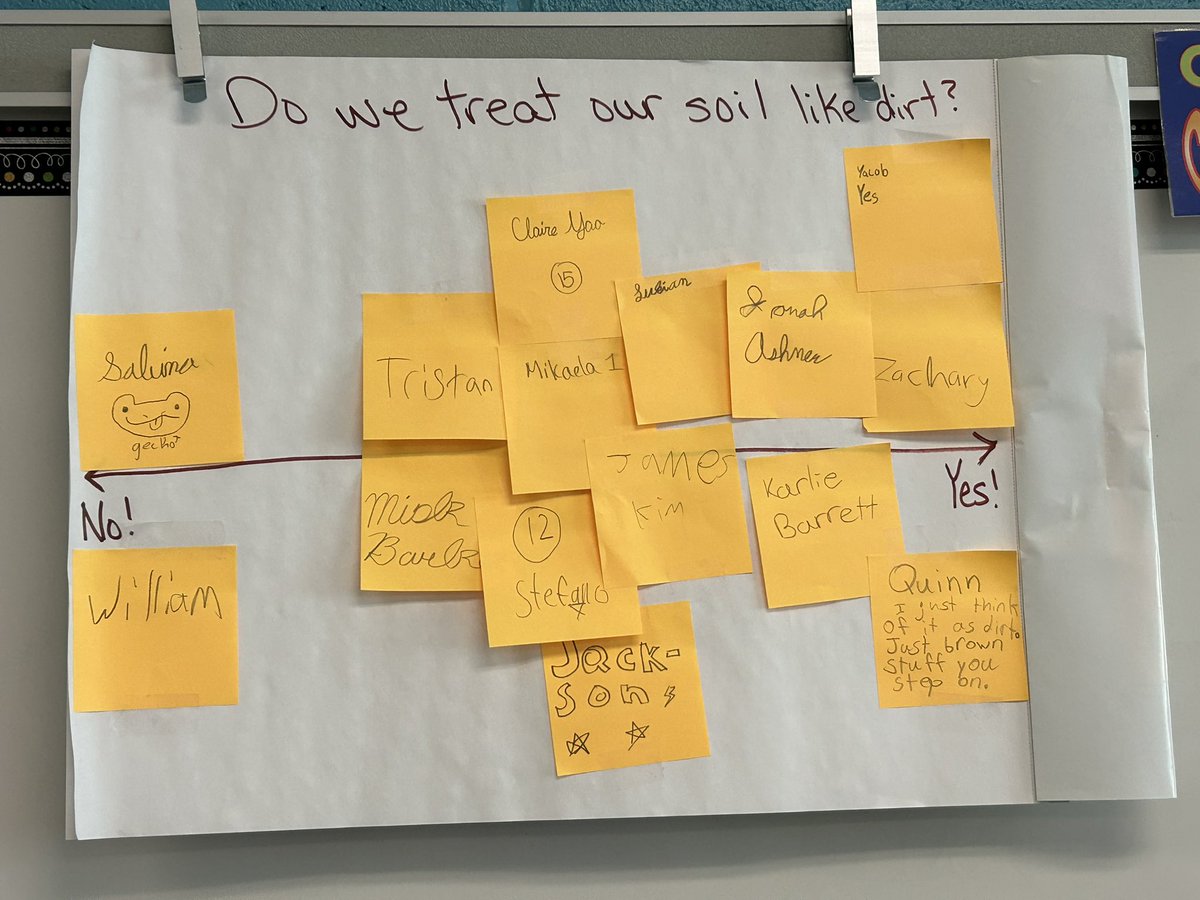 Do we treat our soil like dirt?
Yacob
Yes
Claire Yao
15
Lucian
Jonah
Ashner
Zachary
Salima
gecko
Tristan
Mikaela 1
No!
Yes!
James
Kim
Karlie
Barrett
12
Stefano
William
Quinn
I just think
of it as dirt.
Just brown
stuff you
step on.
Jack-
son